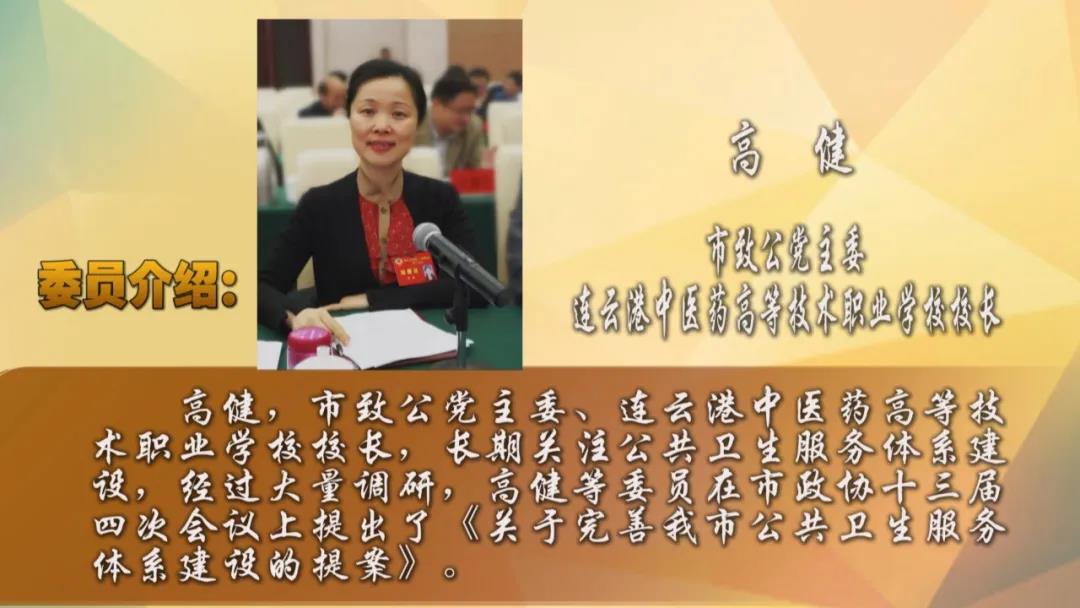 高 健
市致公党主委
委员介绍：
连云港中医药高等技术职业学校校长
高健，市致公党主委、连云港中医药高等技
术职业学校校长，长期关注公共卫生服务体系建
设，经过大量调研，高健等委员在市政协十三届
四次会议上提出了《关于完善我市公共卫生服务
体系建设的提案》。